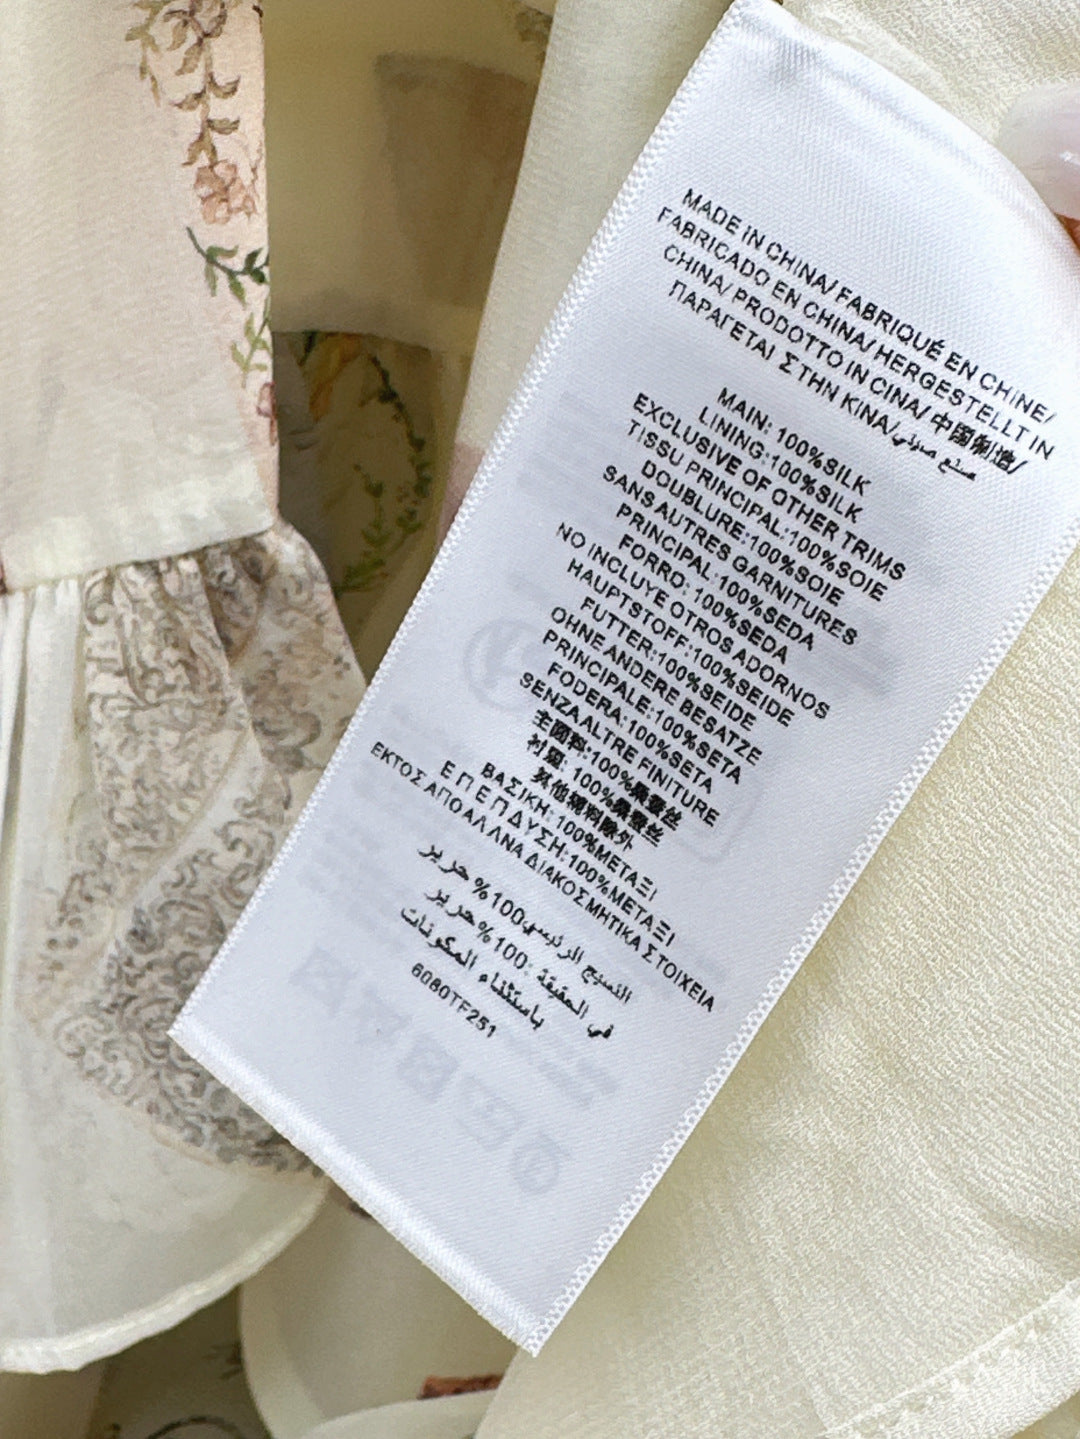 MADE IN CHINA/ FABRIQUÉ EN CHINE/
FABRICADO EN CHINA/ HERGESTELLT IN
CHINA/ PRODOTTO IN CINA/ 中国制造/
ΠΑΡΑΓΕΤΑΙ ΣΤΗΝ ΚΙΝΑ/صنع صيني
MAIN: 100%SILK
LINING:100%SILK
EXCLUSIVE OF OTHER TRIMS
TISSU PRINCIPAL:100%SOIE
DOUBLURE:100%SOIE
SANS AUTRES GARNITURES
PRINCIPAL:100%SEDA
FORRD: 100%SEDA
NO INCLUYE OTROS ADORNOS
HAUPTSTOFF:100%SEIDE
FUTTER:100%SEIDE
OHNE ANDERE BESATZE
PRINCIPALE:100%SETA
FODERA:100%SETA
SENZA ALTRE FINITURE
主面料:100%桑蚕丝
衬里: 100%桑蚕丝
其他辅料除外
ΒΑΣΙΚΗ: 100%ΜΕΤΑΞΙ
ΕΠΕΠΔΥΣΗ:100%ΜΕΤΑΞΙ
ΕΚΤΟΣ ΑΠΟ ΑΛΛΝΑ ΔΙΑΚΟΣΜΗΤΙΚΑ ΣΤΟΙΧΕΙΑ
النسيج الرئيسي100% حرير
في الحقيقة :100% حرير
باستثناء المكونات
6080TF251